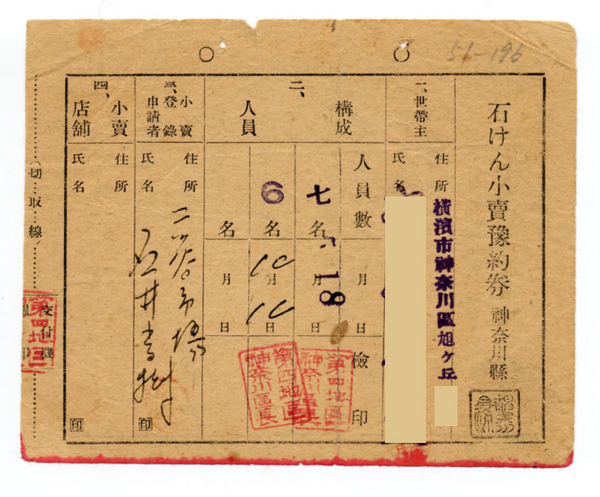 51-196
石けん小賣豫約券 神奈川縣
一、世帶主
住所
氏名
橫濱市神奈川區旭ヶ丘
二、構成人員
人員數
檢印
七名
18
6名
月日
10
名
月日
三、小賣登錄申請者
住所
氏名
二ツ谷市場
石井
印
四、小賣店舖
住所
氏名
印
切取線
第四地區
神奈川區長
第四地區
神奈川區長
第四地
交付機